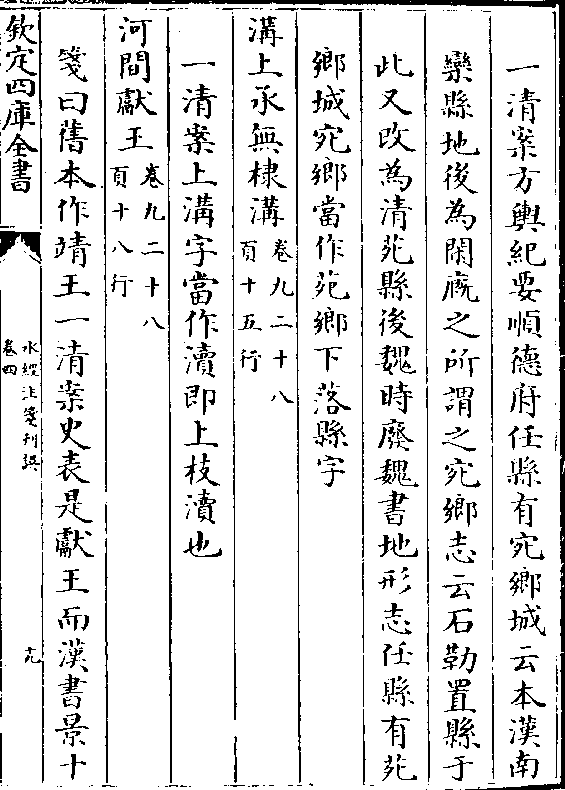 一清案方輿紀要順德府任縣有宛鄉城云本漢南
欒縣地後為閑廐之所謂之宛鄉志云石勒置縣于
此又改為清苑縣後魏時廢魏書地形志任縣有苑
鄉城宛鄉當作苑鄉下落縣字
溝上承無棣溝卷九二十八
頁十五行
一清案上溝字當作瀆即上枝瀆也
河間獻王卷九二十八
頁十八行
箋曰舊本作靖王一清案史表是獻王而漢書景十
欽定四庫全書
水經注箋刊誤
卷四
十九